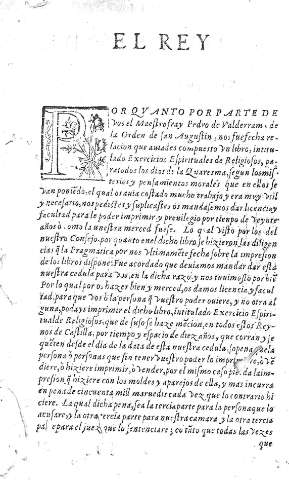 EL REY
POR QVANTO POR PARTE DE
Vos el Maestro fray Pedro de Valderrama, de
la Orden de san Augustin, nos fue fecha re-
lacion que auiades compuesto vn libro, intitu-
lado Exercicios Espirituales de Religiosos, pa-
ra todos los dias de la Quaresma, segun los mis-
terios y pensamientos morales que en ellos se
van poniēdo, el qual os auia costado mucho trabajo, y era muy vtil
y necesario, nos pedistes y suplicastes os mandasemos dar licencia y
facultad para le poder imprimir, y preuilegio por tiempo de veynte
años ò como la nuestra merced fuese. Lo qual visto por los del
nuestro Consejo, por quanto en el dicho libro se hizieron las diligen
cias q̃ la Pragmatica por nos vltimamēte fecha sobre la impresion
de los libros dispone: Fue acordado que deuiamos mandar dar esta
nuestra cedula para vos, en la dicha razon, y nos tuuimoslo por biē
Por la qual por os hazer bien y merced, os damos licencia, y facul
tad, para que vos ò la persona q̃ vuestro poder ouiere, y no otra al
guna, podays imprimir el dicho libro, intitulado Exercicio Espiri-
tual de Religiosos, que de suso se haze mēcion, en todos estos Rey-
nos de Castilla, por tiempo y espacio de diez años, que corran y se
quēten desde el dia de la data de esta nuestra cedula: so pena que la
persona ò personas que sin tener vuestro poder lo imprimiere, ò vē
diere, ò hiziere imprimir, ò vender, por el mismo caso pierda la im-
presion q̃ hiziere con los moldes y aparejos de ella, y mas incurra
en pena de cincuenta mil marauedis cada vez que lo contrario hi
ciere. La qual dicha pena, sea la tercia parte para la persona que lo
acusare, y la otra tercia parte para nuestra camara, y la otra tercia
parte para el juez que lo sentenciare: cō tāto que todas las vezes
que